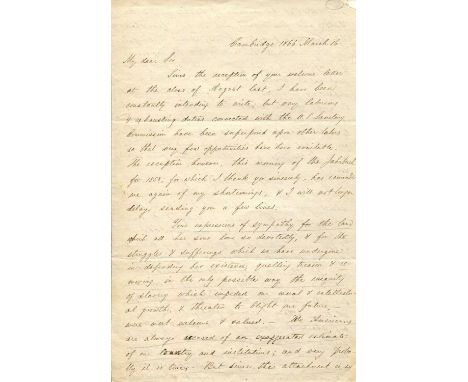 Cambridge 1866 March 16
My dear Sir
Since the reception of your welcome letter
at the close of August last, I have been
constantly intending to write, but very laborious
& exhausting duties connected with the U.S. Sanitary
Commission have been superposed upon other labors
so that very few opportunities have been available.
The reception however, this morning of the Jahrbuch
for 1868, for which I thank you sincerely, has reminded
me again of my shortcomings, & I will not longer
delay, sending you a few lines.
Your expressions of sympathy for the land
which all her sons love so devotedly, & for its
struggles & sufferings which we have undergone
in defending her existence, quelling treason &
moving, in the only possible way the iniquity
of slavery which impeded our moral & intellectu-
al growth, & threatened to blight our future,
were most welcome & valued. — We Americans
are always accused of an exaggerated estimate
of our country and institutions; and very possi-
bly it is true. But since the attachment is so